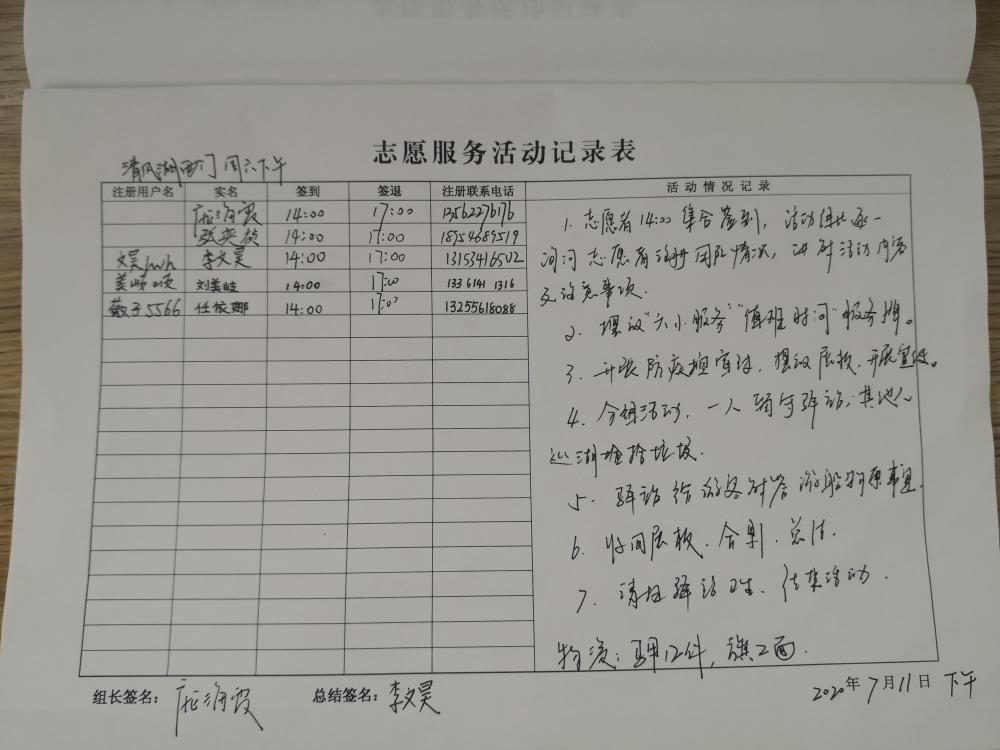 志愿服务活动记录表
清风湖西门 周六下午
注册用户名 实名 签到 签退 注册联系电话 活动情况记录
海霞 14:00 17:00 13562276176
14:00 17:00 18954689519
文昊 李文昊 14:00 17:00 13153416502
美岐 刘美岐 14:00 17:00 1336141 1316
薇子5566 任俊娜 14:00 17:00 13255618088
1. 志愿者14:00集合签到,活动组长逐一
询问志愿者注册团队情况,讲解活动内容
及注意事项.
2. 摆放"六小服务""值班时间"服务牌。
3. 开展防疫宣传,摆放展板、开展宣传。
4. 分组活动,一人留守驿站,其他人
巡湖捡拾垃圾.
5. 驿站给游客解答游船事宜.
6. 收回展板、合影、总结.
7. 清扫驿站卫生、结束活动.
物资:马甲12件,旗2面.
组长签名: 海霞 总结签名: 李文昊
2020年7月11日 下午